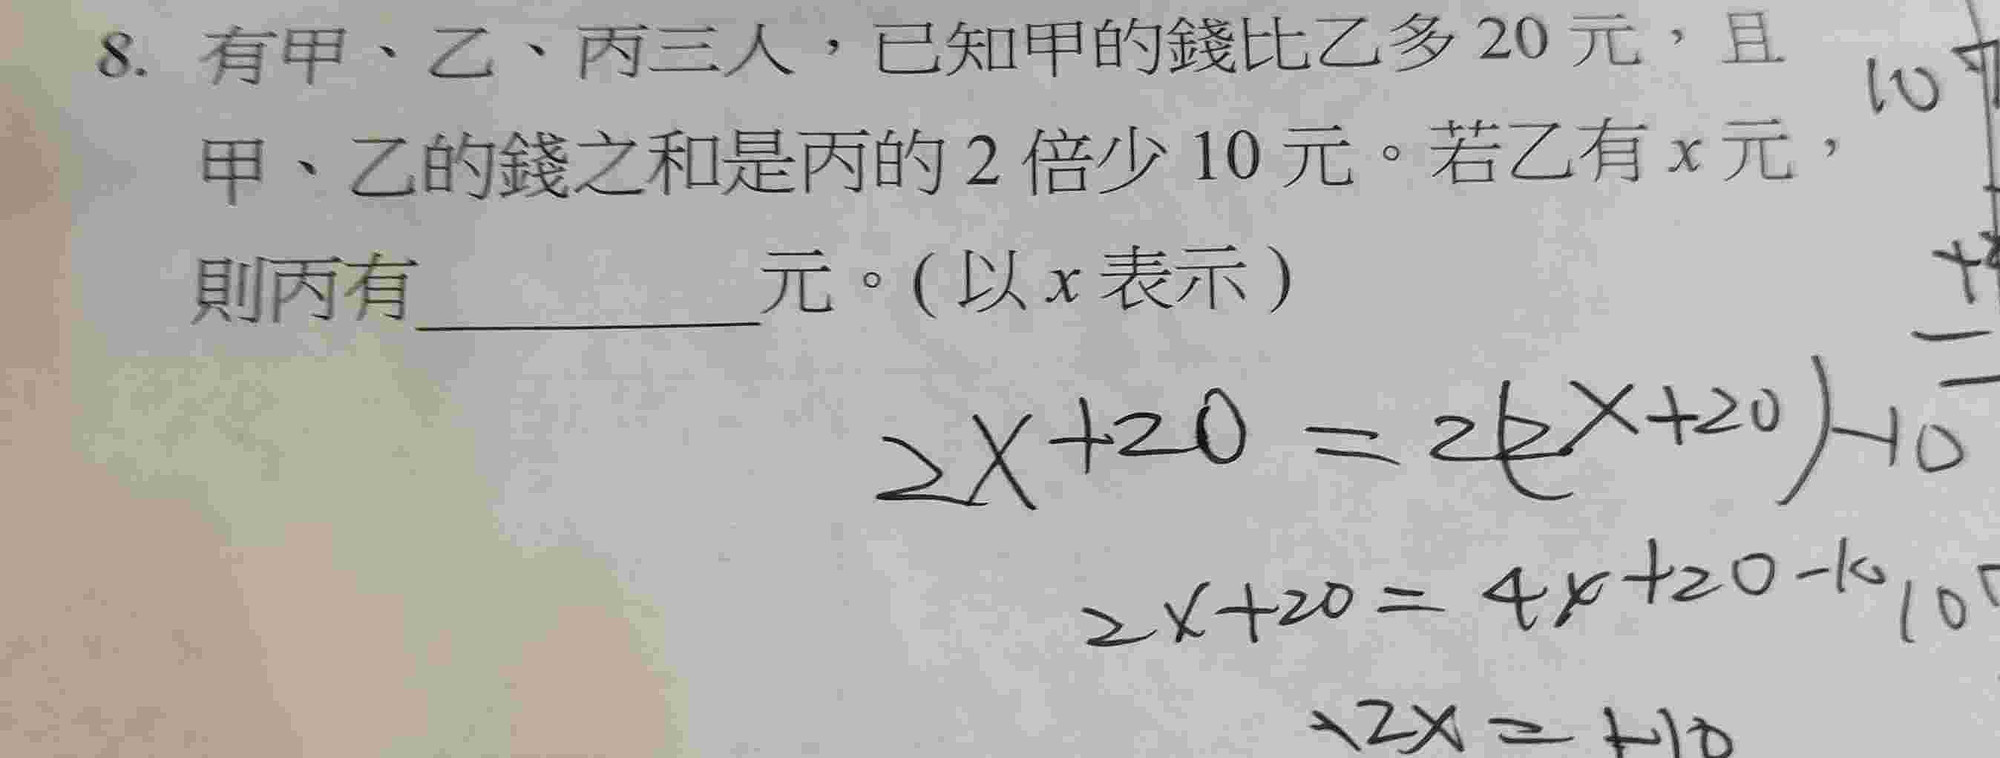 8. 有甲、乙、丙三人，已知甲的錢比乙多 20 元，且
甲、乙的錢之和是丙的 2 倍少 10 元。若乙有 x 元，
則丙有__________元。( 以 x 表示 )
10
2x+20 = 2(2x+20)-10
2x+20 = 4x+20-10
10
2x = +10